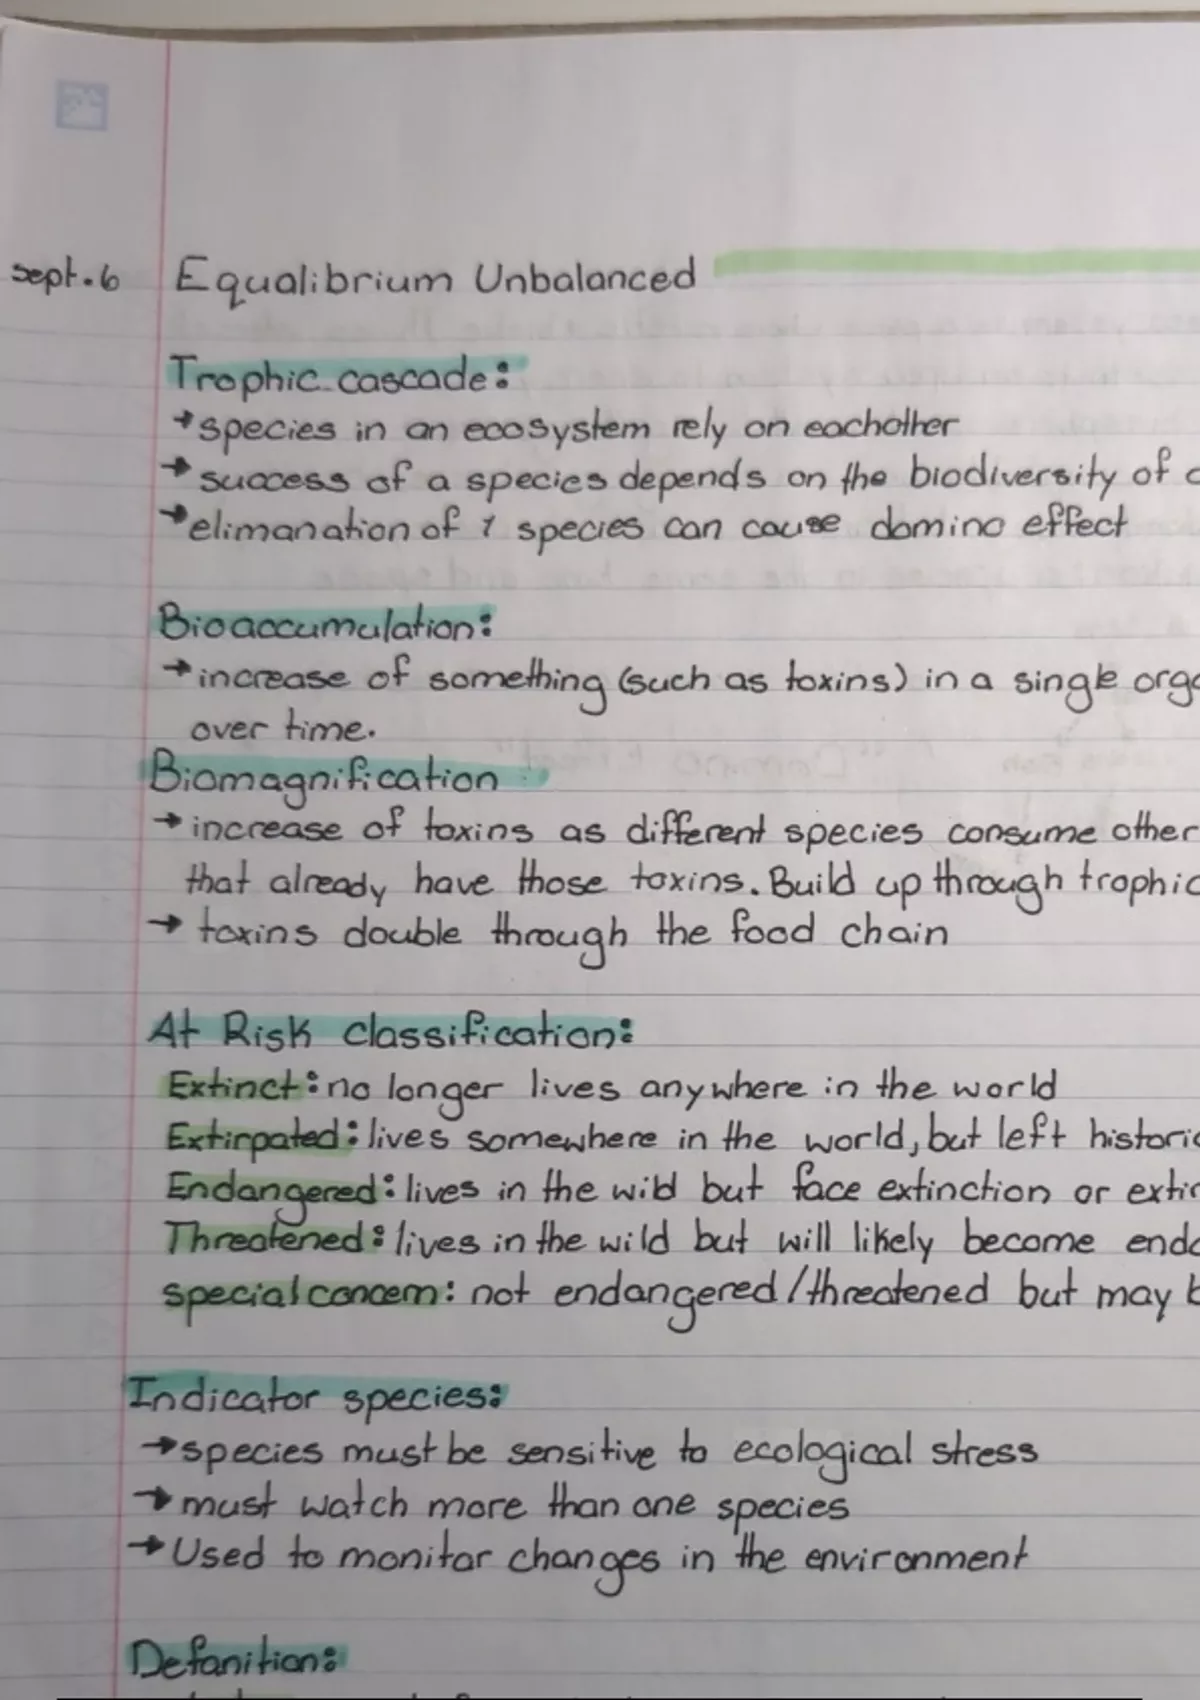 sept. 6 Equalibrium Unbalanced
Trophic cascade:
→ species in an ecosystem rely on eachother
→ success of a species depends on the biodiversity of
→ elimanation of 1 species can cause domino effect
Bioaccumulation:
→ increase of something (such as toxins) in a single
over time.
Biomagnification
→ increase of toxins as different species consume other
that already have those toxins. Build up through trophic
→ toxins double through the food chain
At Risk classification:
Extinct: no longer lives anywhere in the world
Extirpated: lives somewhere in the world, but left
Endangered: lives in the wild but face extinction or
Threatened: lives in the wild but will likely become
special concern: not endangered/threatened but may
Indicator species:
→ species must be sensitive to ecological stress
→ must watch more than one species
→ Used to monitor changes in the environment
Defanition: